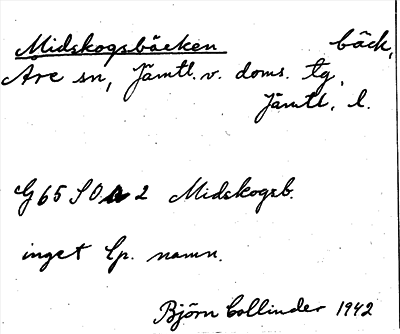 Midskogsbäcken bäck,
Åre sn, Jämtl. v. doms. tg.
Jämtl. l.
G 65 SO a 2 Midskogsb.
inget lp. namn.
Björn Collinder 1942